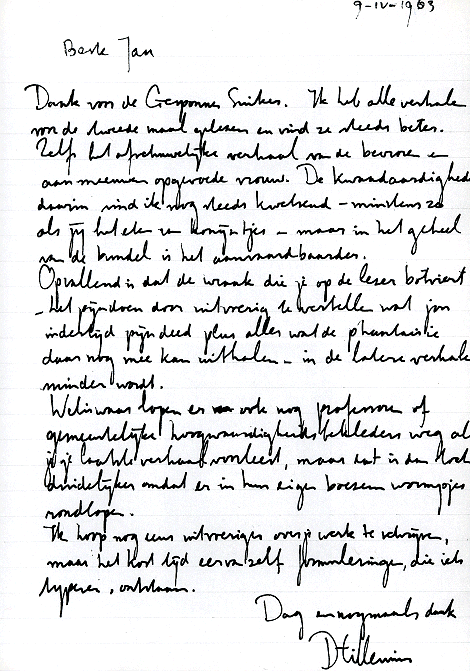 9-IV-1963
Beste Jan
Dank voor de Gesponnen Suiker. Ik heb alle verhalen
voor de tweede maal gelezen en vind ze steeds beter.
Zelfs het afschuwelijke verhaal van de bevroren en
aan meeuwen opgevoede vrouw. De kwaadaardigheid
daarin vind ik nog steeds kwetsend - minstens zo
als jij het eten van konijntjes - maar in het geheel
van de bundel is het aanvaardbaarder.
Opvallend is dat de wraak die je op de lezer botviert
- het pijndoen door uitvoerig te vertellen wat jou
indertijd pijn deed plus alles wat de phantasie
daar nog mee kan uithalen - in de latere verhalen
minder wordt.
Weliswaar lopen er ook nog professoren of
gemeentelijke hoogwaardigheidsbekleders weg als
je je laatste verhaal voorleest, maar dat is dan toch
duidelijker omdat er in hun eigen boezem wormpjes
rondlopen.
Ik hoop nog eens uitvoeriger over je werk te schrijven,
maar het kost tijd eer vanzelf formuleringen, die iets
typeren, ontstaan.
Dag en nogmaals dank
DHillenius